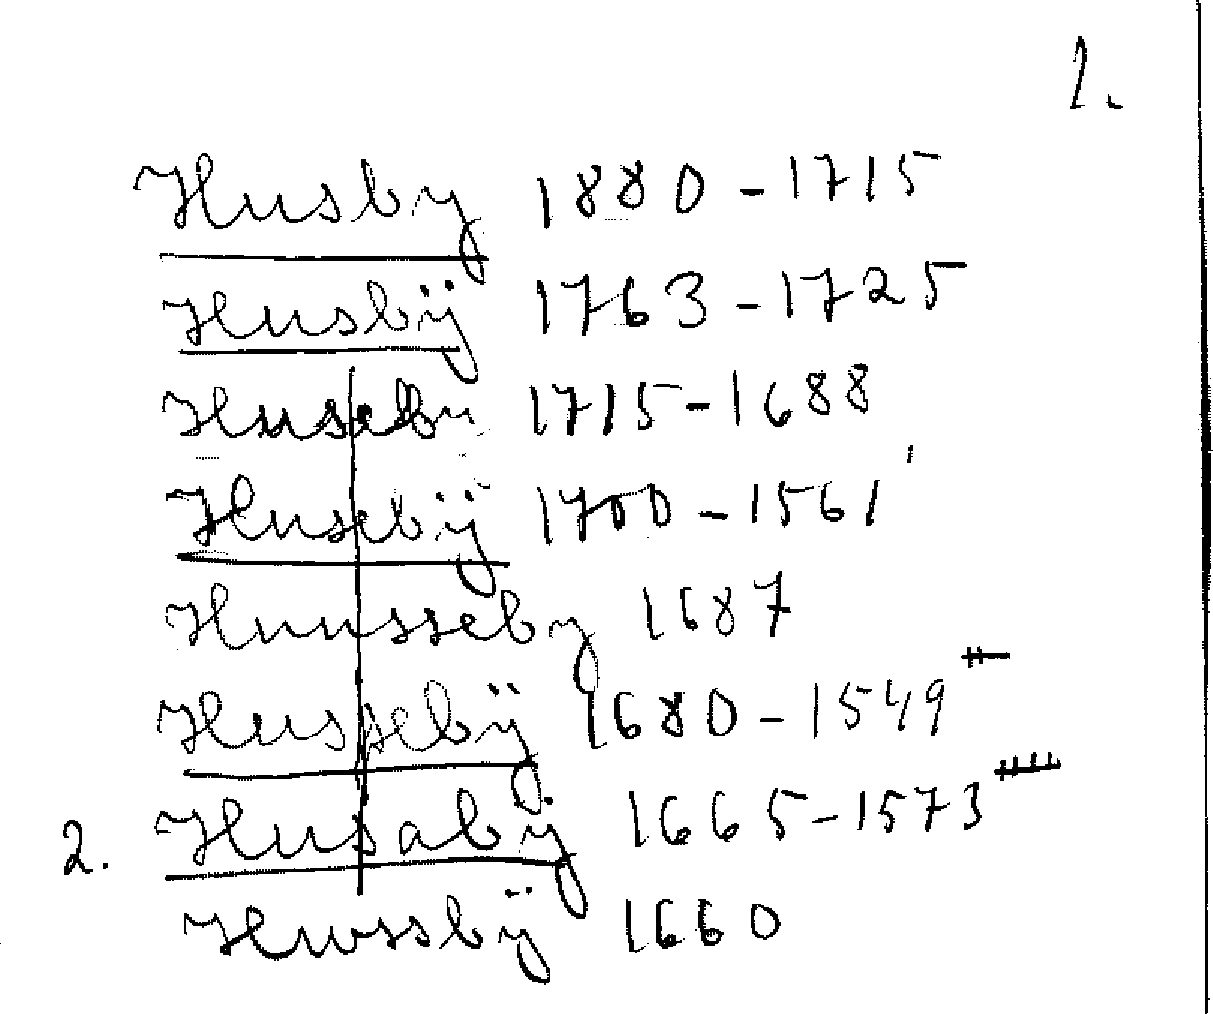 1.
Husby 1880-1715
Husbÿ 1763-1725
Huseby 1715-1688
Husebÿ 1700-1561
Huusseby 1687
Hussebÿ 1680-1549
2. Husabÿ 1665-1573
Hwssbÿ 1660